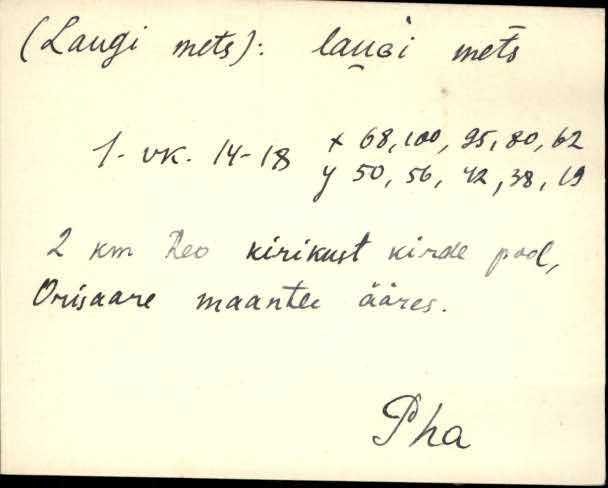 (Laugi mets): lau̮ɢi met̀s
1- vk. 14-18 x 68, 100, 95, 80, 62
y 50, 56, 42, 38, 19
2 km Reo kirikust kirde pool,
Orisaare maantee ääres.
Pha